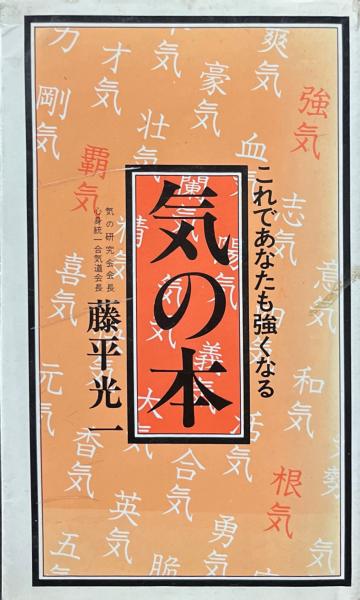 これであなたも強くなる
気の本
気の研究会会長
心身統一合気道会長
藤平光一
爽気
豪気
才気
カ気
剛気
壮気
強気
血気
覇気
蘭気
志気
陽気
精気
喜気
意気
義気
和気
元気
大気
活気
香気
合気
根気
英気
勇気
五気
脆